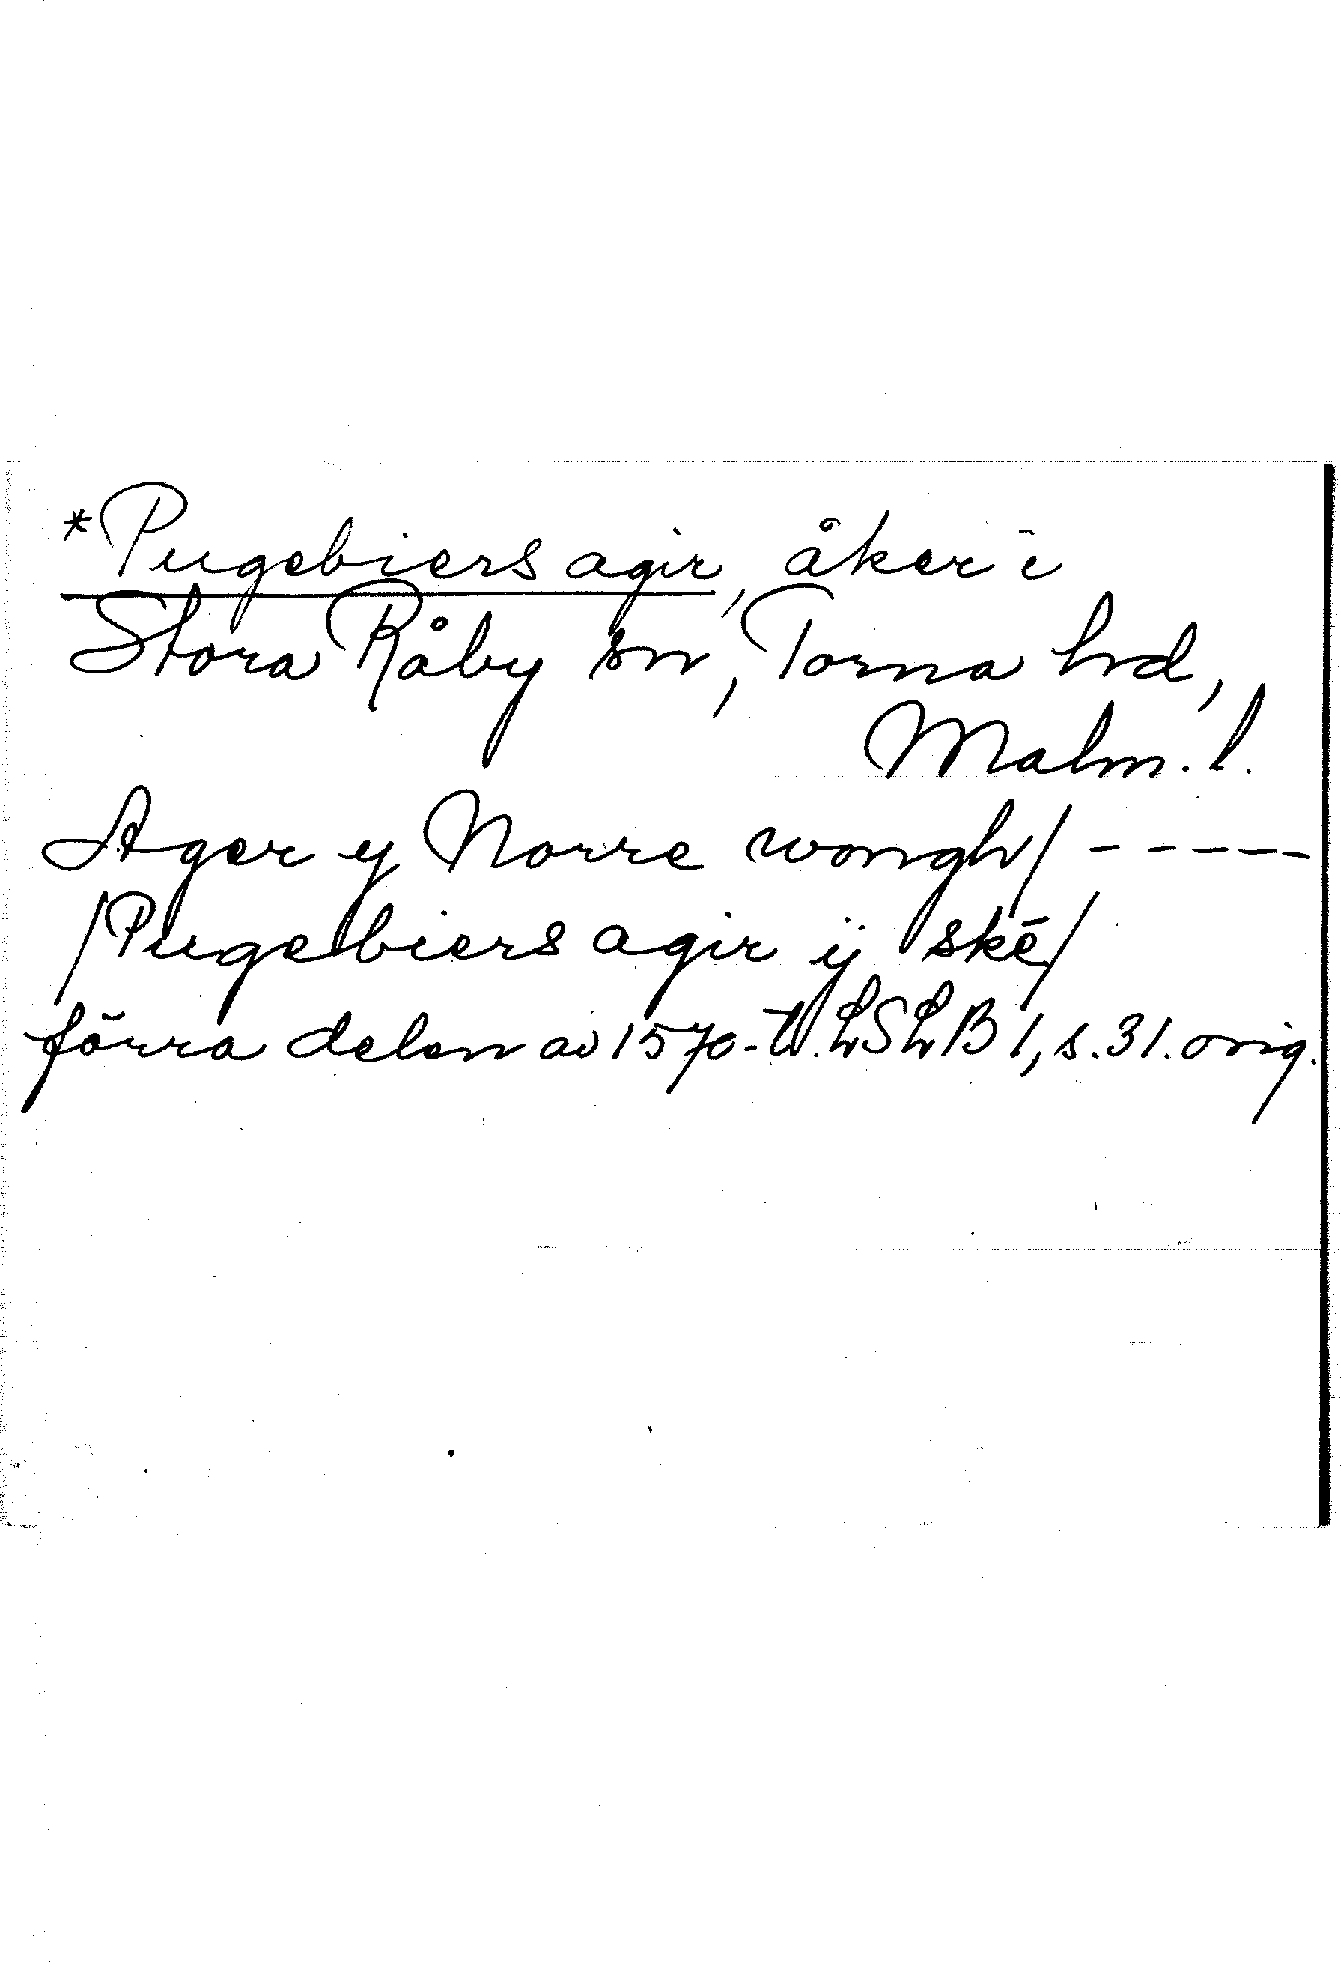 *Pugebiers agir, åker i
Stora Råby sn, Torna hd,
Malm. l.
Ager y Norre wongh/ -----
/Pugebiers agir ij skē/
förra delen av 1570-t. LSLB 1, s. 31. orig.